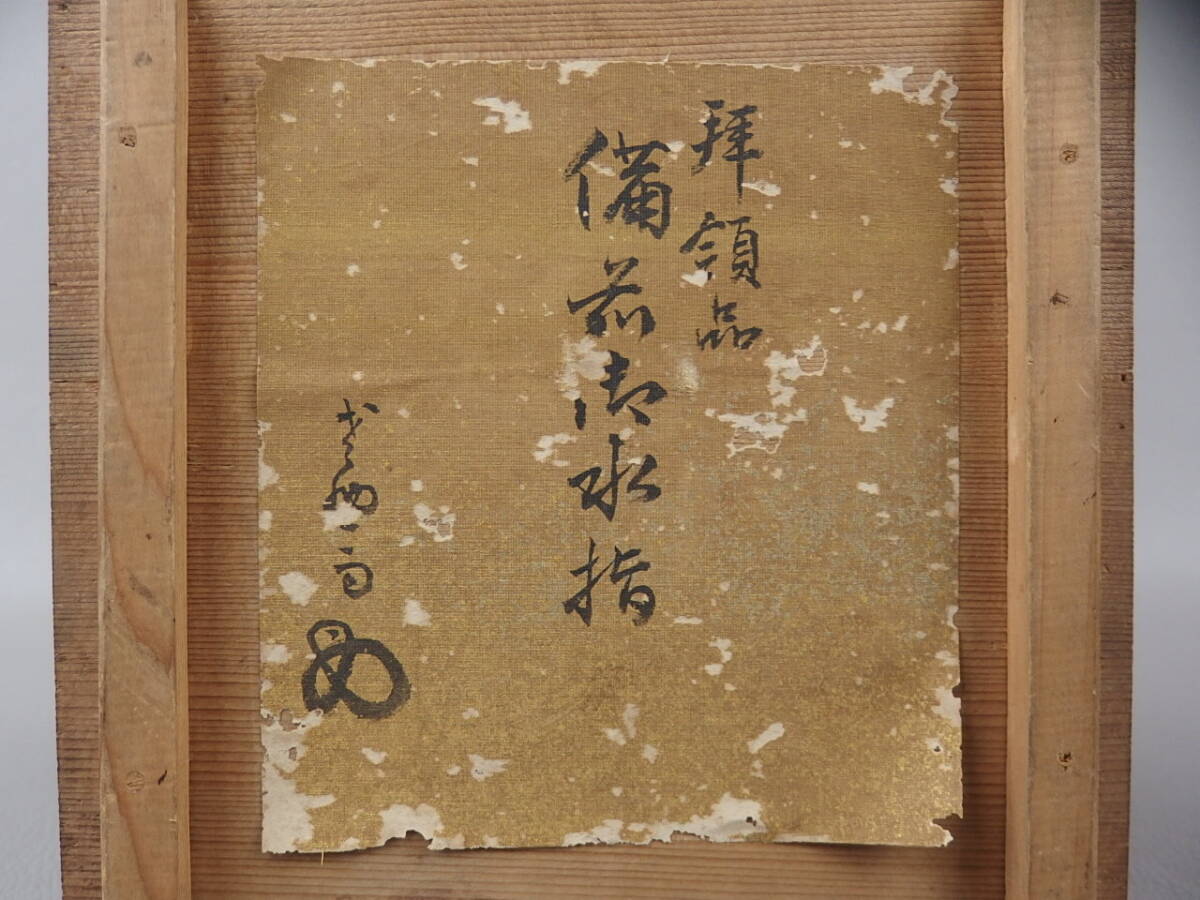 拝領品
備前御水指